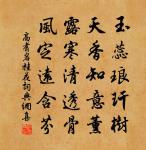 玉蕊琅玕樹
天香知意薰
露寒清透骨
風定遠含芬
岩桂花詞典網集